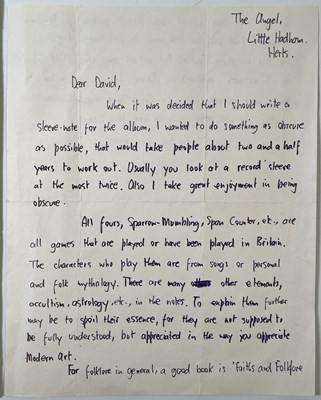 The Angel,
Little Hadham.
Herts.
Dear David,
When it was decided that I should write a
sleeve-note for the album, I wanted to do something as obscure
as possible, that would take people about two and a half
years to work out. Usually you look at a record sleeve
at the most twice. Also I take great enjoyment in being
obscure.
All fours, Sparrow-Mumbling, Span Counter, etc., are
all games that are played or have been played in Britain.
The characters who play them are from songs or personal
and folk mythology. There are many other elements,
occultism, astrology, etc., in the notes. To explain them further
may be to spoil their essence, for they are not supposed to
be fully understood, but appreciated in the way you appreciate
Modern Art.
For folklore in general, a good book is 'Faiths and Folklore